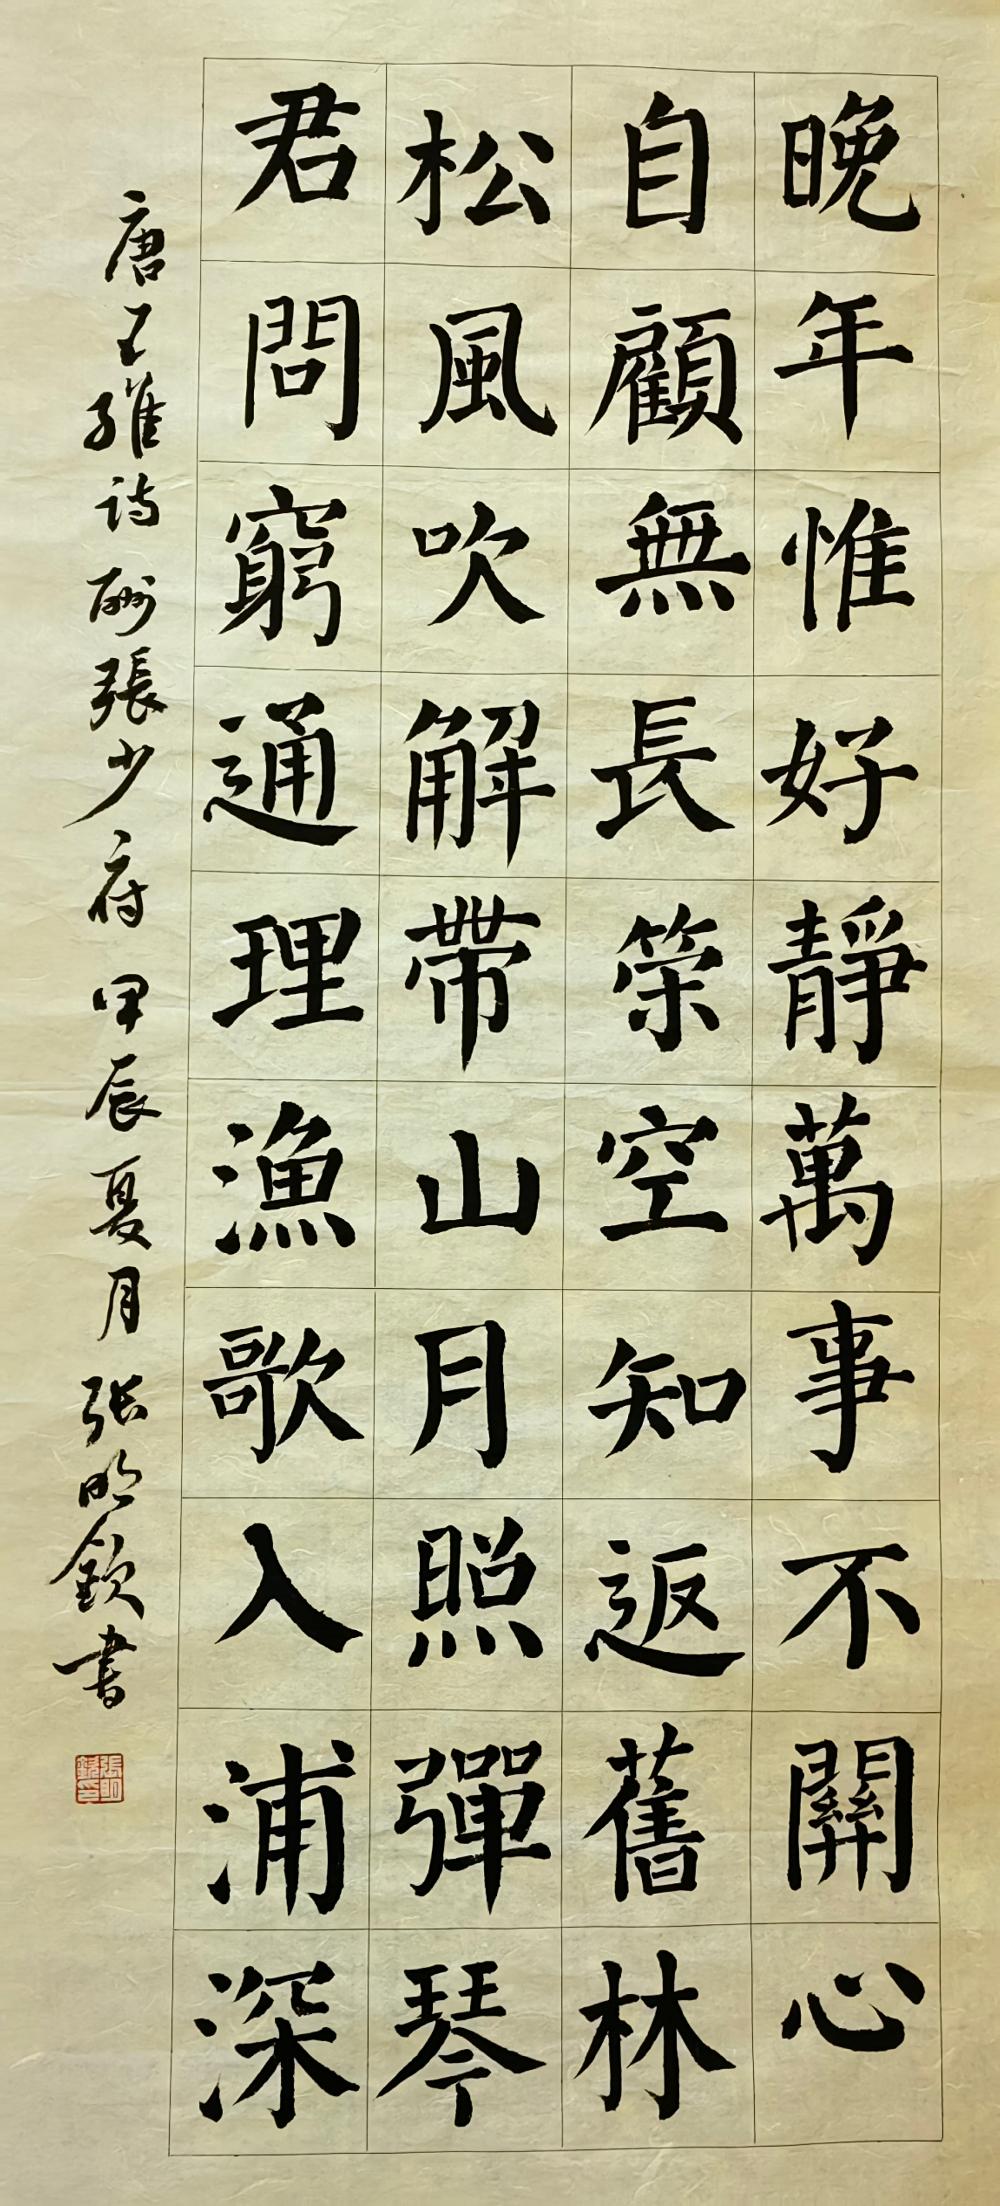 晚年惟好靜萬事不關心
自顧無長策空知返舊林
松風吹解帶山月照彈琴
君問窮通理漁歌入浦深
唐王維詩酬張少府甲辰夏月張明欽書